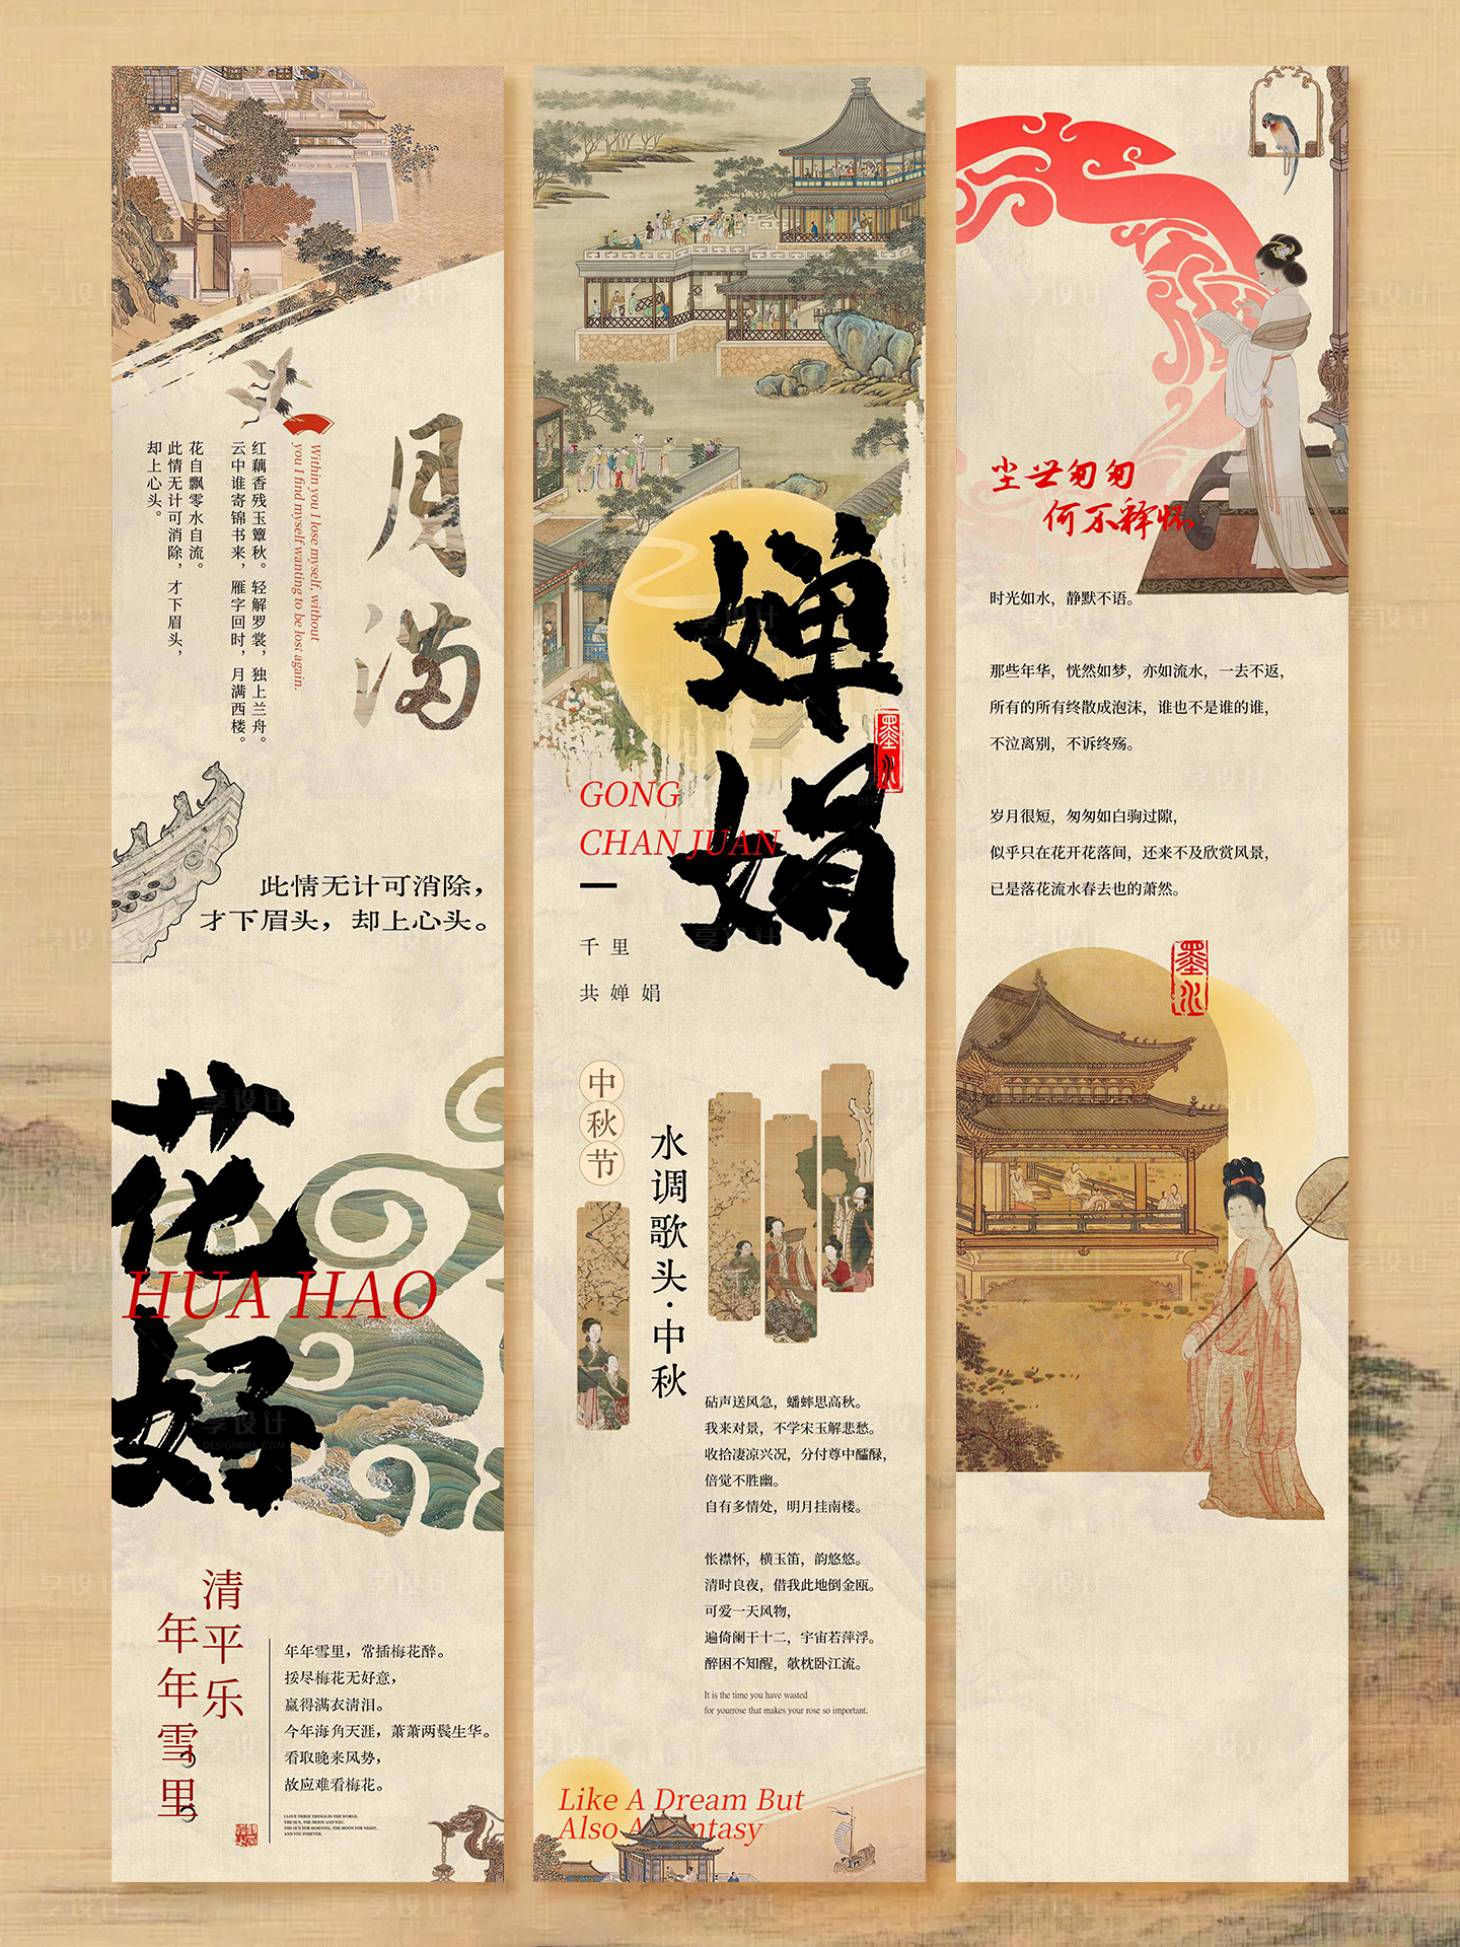 月满
Within you I lose myself, without
you I find myself wanting to be lost again.
红藕香残玉簟秋。轻解罗裳，独上兰舟。
云中谁寄锦书来，雁字回时，月满西楼。
花自飘零水自流。
此情无计可消除，才下眉头，
却上心头。
此情无计可消除，
才下眉头，却上心头。
花好
HUA HAO
清平乐
年年雪里
年年雪里，常插梅花醉。
挼尽梅花无好意，
赢得满衣清泪。
今年海角天涯，萧萧两鬓生华。
看取晚来风势，
故应难看梅花。
I LOVE THREE THINGS IN THE WORLD.
THE SUN, THE MOON AND YOU.
THE SUN FOR MORNING, THE MOON FOR NIGHT,
AND YOU FOREVER.
婵娟
墨水
GONG
CHAN JUAN
千里
共婵娟
中秋节
水调歌头·中秋
砧声送风急，蟠蟀思高秋。
我来对景，不学宋玉解悲愁。
收拾凄凉兴况，分付尊中醽醁，
倍觉不胜幽。
自有多情处，明月挂南楼。
怅襟怀，横玉笛，韵悠悠。
清时良夜，借我此地倒金瓯。
可爱一天风物，
遍倚阑干十二，宇宙若萍浮。
醉困不知醒，欹枕卧江流。
It is the time you have wasted
for yourrose that makes your rose so important.
Like A Dream But
Also A Fantasy
尘世匆匆
何不释怀
时光如水，静默不语。
那些年华，恍然如梦，亦如流水，一去不返，
所有的所有终散成泡沫，谁也不是谁的谁，
不泣离别，不诉终殇。
岁月很短，匆匆如白驹过隙，
似乎只在花开花落间，还来不及欣赏风景，
已是落花流水春去也的萧然。
墨水
享设计
DESIGN006.COM